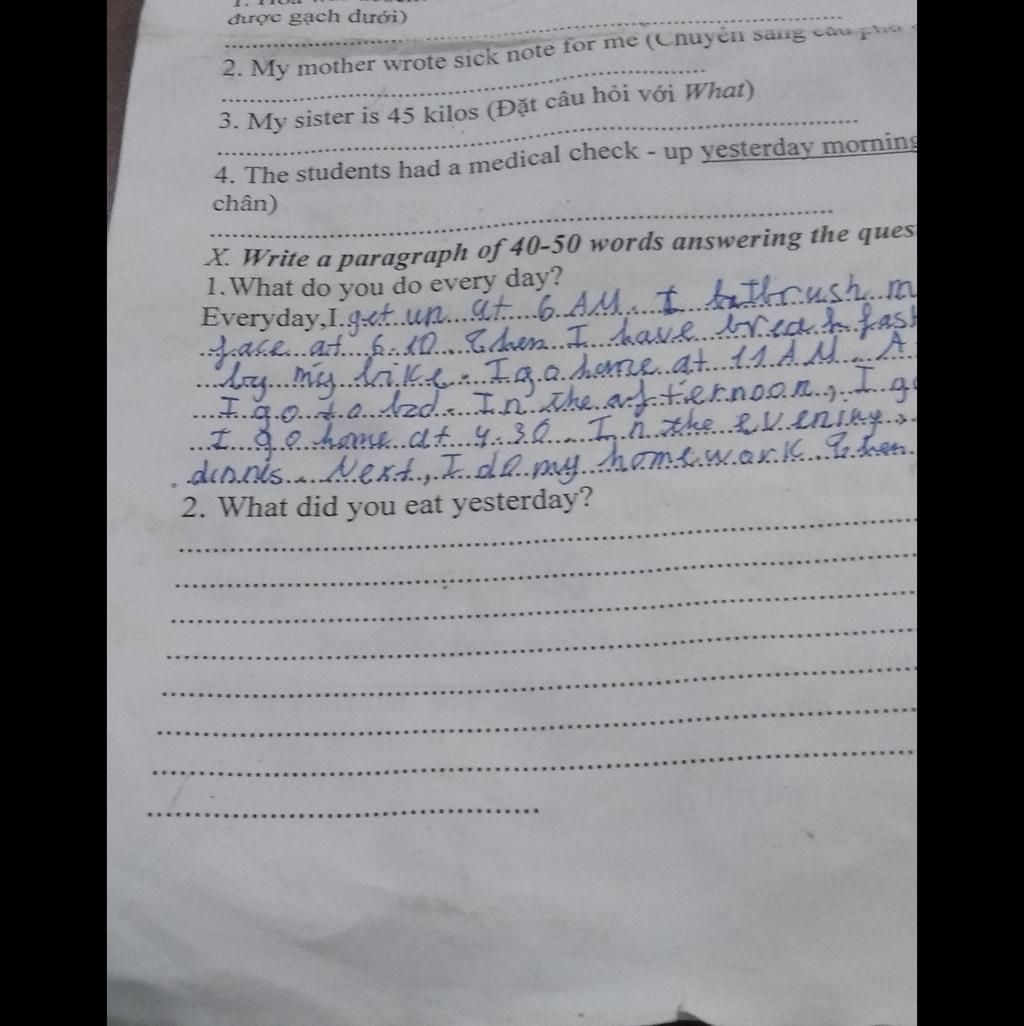 được gạch dưới)
2. My mother wrote sick note for me (Chuyển sang câu phủ
3. My sister is 45 kilos (Đặt câu hỏi với What)
4. The students had a medical check - up yesterday morning
chân)
X. Write a paragraph of 40-50 words answering the ques
1. What do you do every day?
Everyday, I get up at 6 AM. I brush m
face at 6:10. Then I have breakfast
by my bike. I go home at 11 AM. A
I go to bed. In the afternoon, I go
I go home at 4:30. In the evening,
Next, I do my homework. Then
2. What did you eat yesterday?